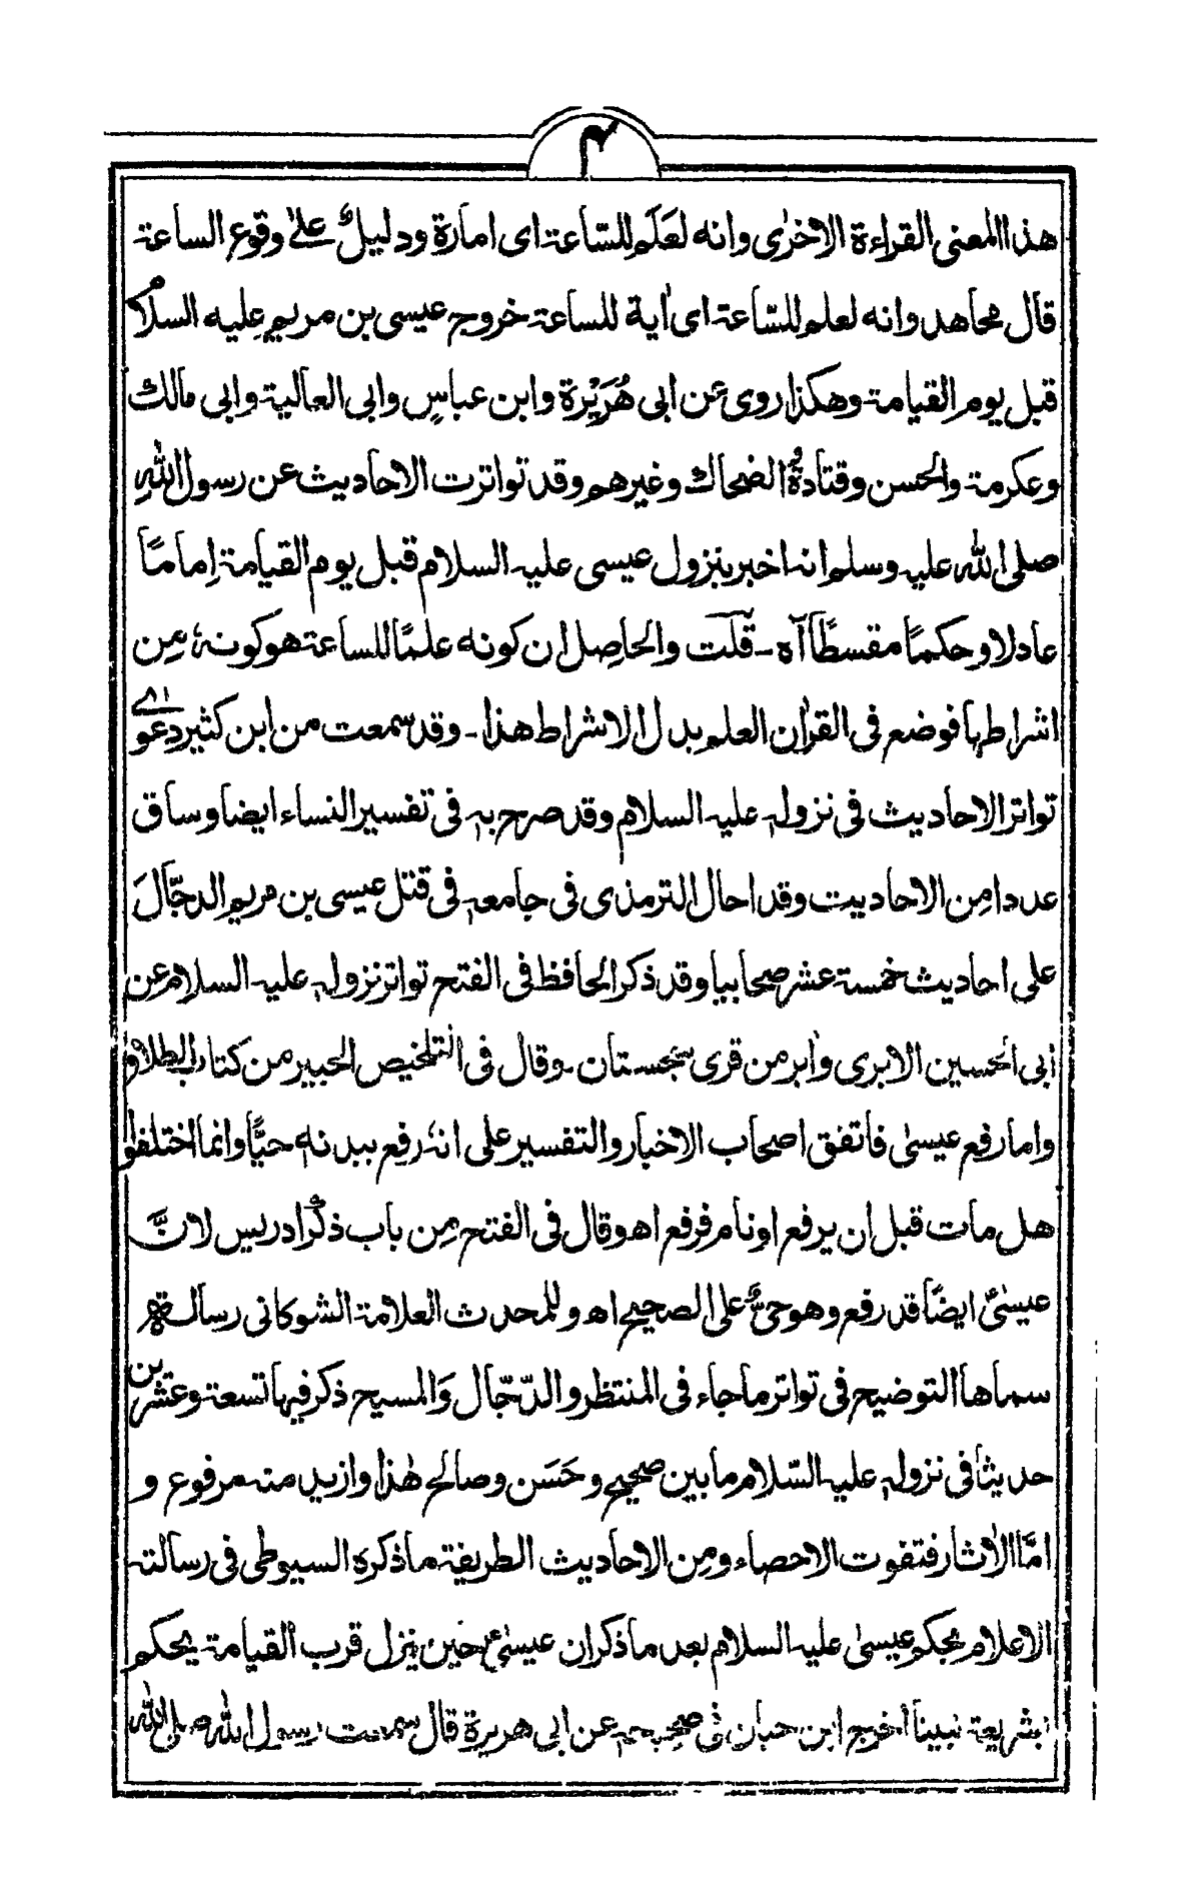 ۴
هذا المعنى القراءة الاخرٰى وانه لعَلَم للسّاعة اى امارة ودليلٌ علىٰ وقوع الساعة
قال مجاهد وانه لعلم للسّاعة اى اٰية للساعة خروج عيسى بن مريم عليه السلام
قبل يوم القيامة وهكذا روى عن ابى هُرَيْرة وابن عباسٍ وابى العالية وابى مالك
وعكرمة والحسن وقتادة والضحاك وغيرهم وقد تواترت الاحاديث عن رسول اللهِ
صلى الله عليه وسلم انه اخبر بنزول عيسى عليه السلام قبل يوم القيامة اِمامًا
عادلا وحكمًا مقسطًا آه - قلت والحاصل ان كونه علمًا للساعة هو كونهٗ مِن
اشراطها فوضع فى القرآن العلم بدل الاشراط هذا - وقد سمعت من ابن كثير دعوىٰ
تواتر الاحاديث فى نزوله عليه السلام وقد صرح به فى تفسير النساء ايضا وساق
عددا مِن الاحاديث وقد احال الترمذى فى جامعه فى قتل عيسى بن مريم الدجّالَ
على احاديث خمسة عشر صحابيا وقد ذكر الحافظ فى الفتح تواتر نزوله عليه السلام عن
ابى الحسين الابرى واٰبر من قرى سجستان - وقال فى التلخيص الحبير من كتاب الطلاق
واما رفع عيسىٰ فاتفق اصحاب الاخبار والتفسير على انهٗ رفع ببدنه حيًّا وانما اختلفوا
هل مات قبل ان يرفع او نام فرفع اه وقال فى الفتح مِن باب ذكر ادريس لانَّ
عيسىٰ ايضًا قد رفع وهو حىٌّ على الصحيح اه وللمحدث العلامة الشوكانى رسالة
سماها التوضيح فى تواتر ما جاء فى المنتظر والدّجّال وَالمسيح ذكر فيها تسعة وعشرين
حديثا فى نزوله عليه السّلام ما بين صحيح وحَسَن وصالح هٰذا وازيد منه مرفوع و
امّا الاٰثار فتفوت الاحصاء ومِن الاحاديث الطريفة ما ذكره السيوطى فى رسالته
الاعلام بحكم عيسىٰ عليه السلام بعد ما ذكر ان عيسىٰؑ حين ينزل قرب القيامة يحكم
بشريعة نبينا اخرج ابن حبان فى صحيحه عن ابى هريرة قال سمعت رسول الله صلى الله